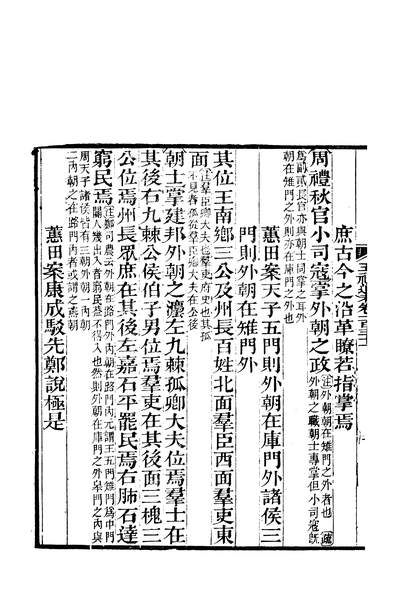 庶古今之沿革瞭若指掌焉
周禮秋官小司寇掌外朝之政
注外朝朝在雉門之外者也 疏
外朝之職朝士專掌但小司寇旣
爲副貳長官亦與朝士同掌之耳外
朝在雉門之外則亦在庫門之外也
蕙田案天子五門則外朝在庫門外諸侯三
門則外朝在雉門外
其位王南鄉三公及州長百姓北面羣臣西面羣吏東
面
注羣臣卿大夫也羣吏府史也其孤
不見者孤從羣臣卿大夫在公後
朝士掌建邦外朝之灋左九棘孤卿大夫位焉羣士在
其後右九棘公侯伯子男位焉羣吏在其後面三槐三
公位焉州長眾庶在其後左嘉石平罷民焉右肺石達
窮民焉
注鄭司農云外朝在路門外內朝在路門內元謂王五門雉門爲中門
閽人幾出入者窮民蓋不得入也然則外朝在庫門之外皐門之內與
周天子諸侯皆有三朝外朝一內朝
二內朝之在路門內者或謂之燕朝
蕙田案康成駁先鄭說極是